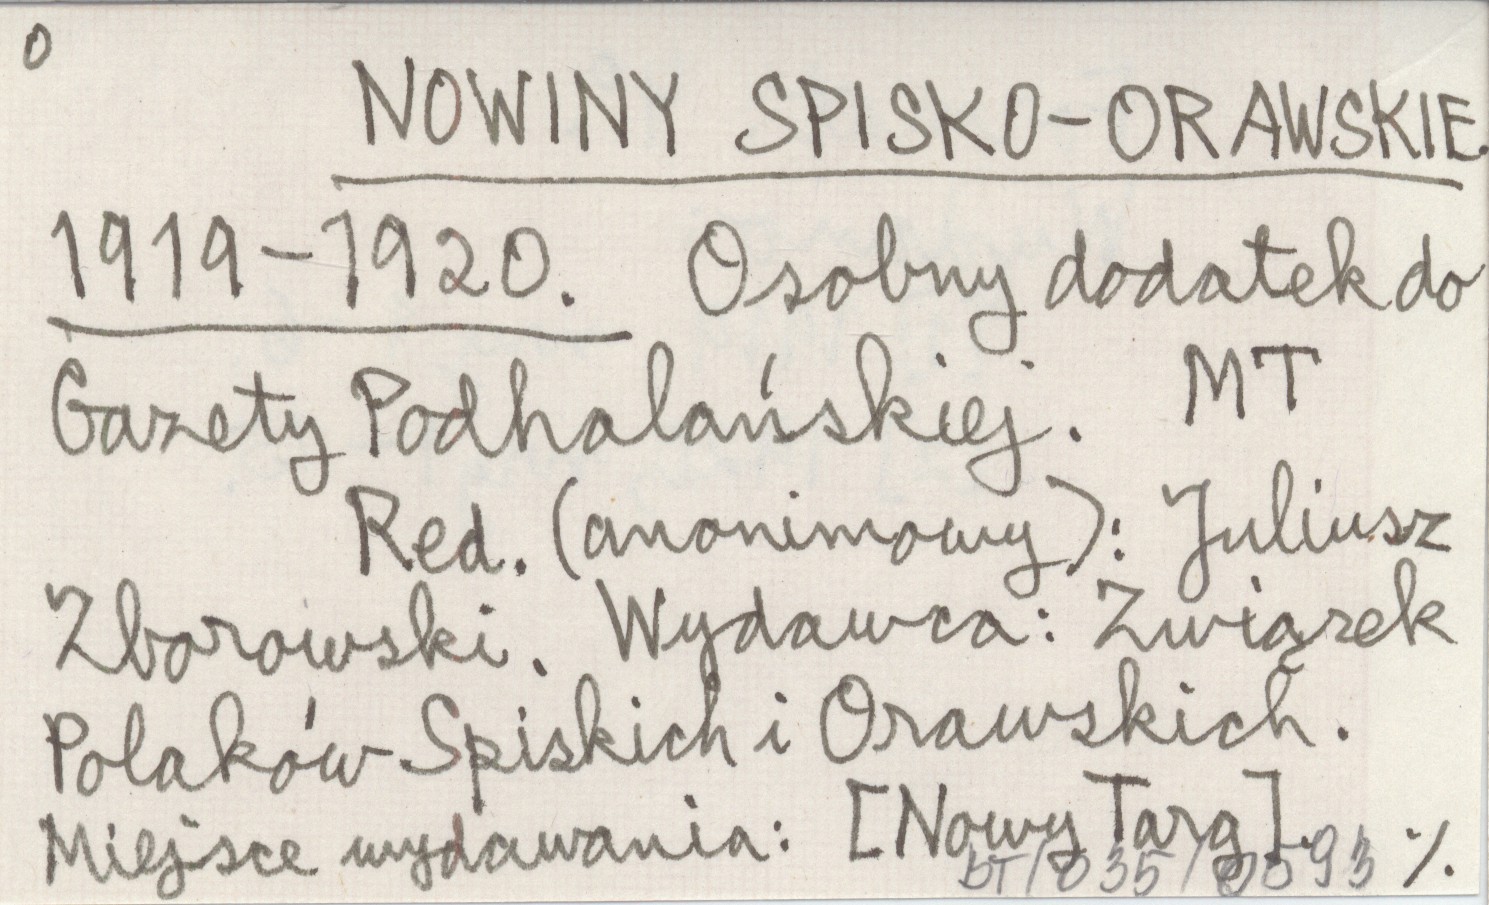 0
NOWINY SPISKO-ORAWSKIE.
1919-1920. Osobny dodatek do
Gazety Podhalańskiej. MT
Red. (anonimowy): Juliusz
Zborowski. Wydawca: Związek
Polaków Spiskich i Orawskich.
Miejsce wydawania: [Nowy Targ]. ./.
DT/035/0093